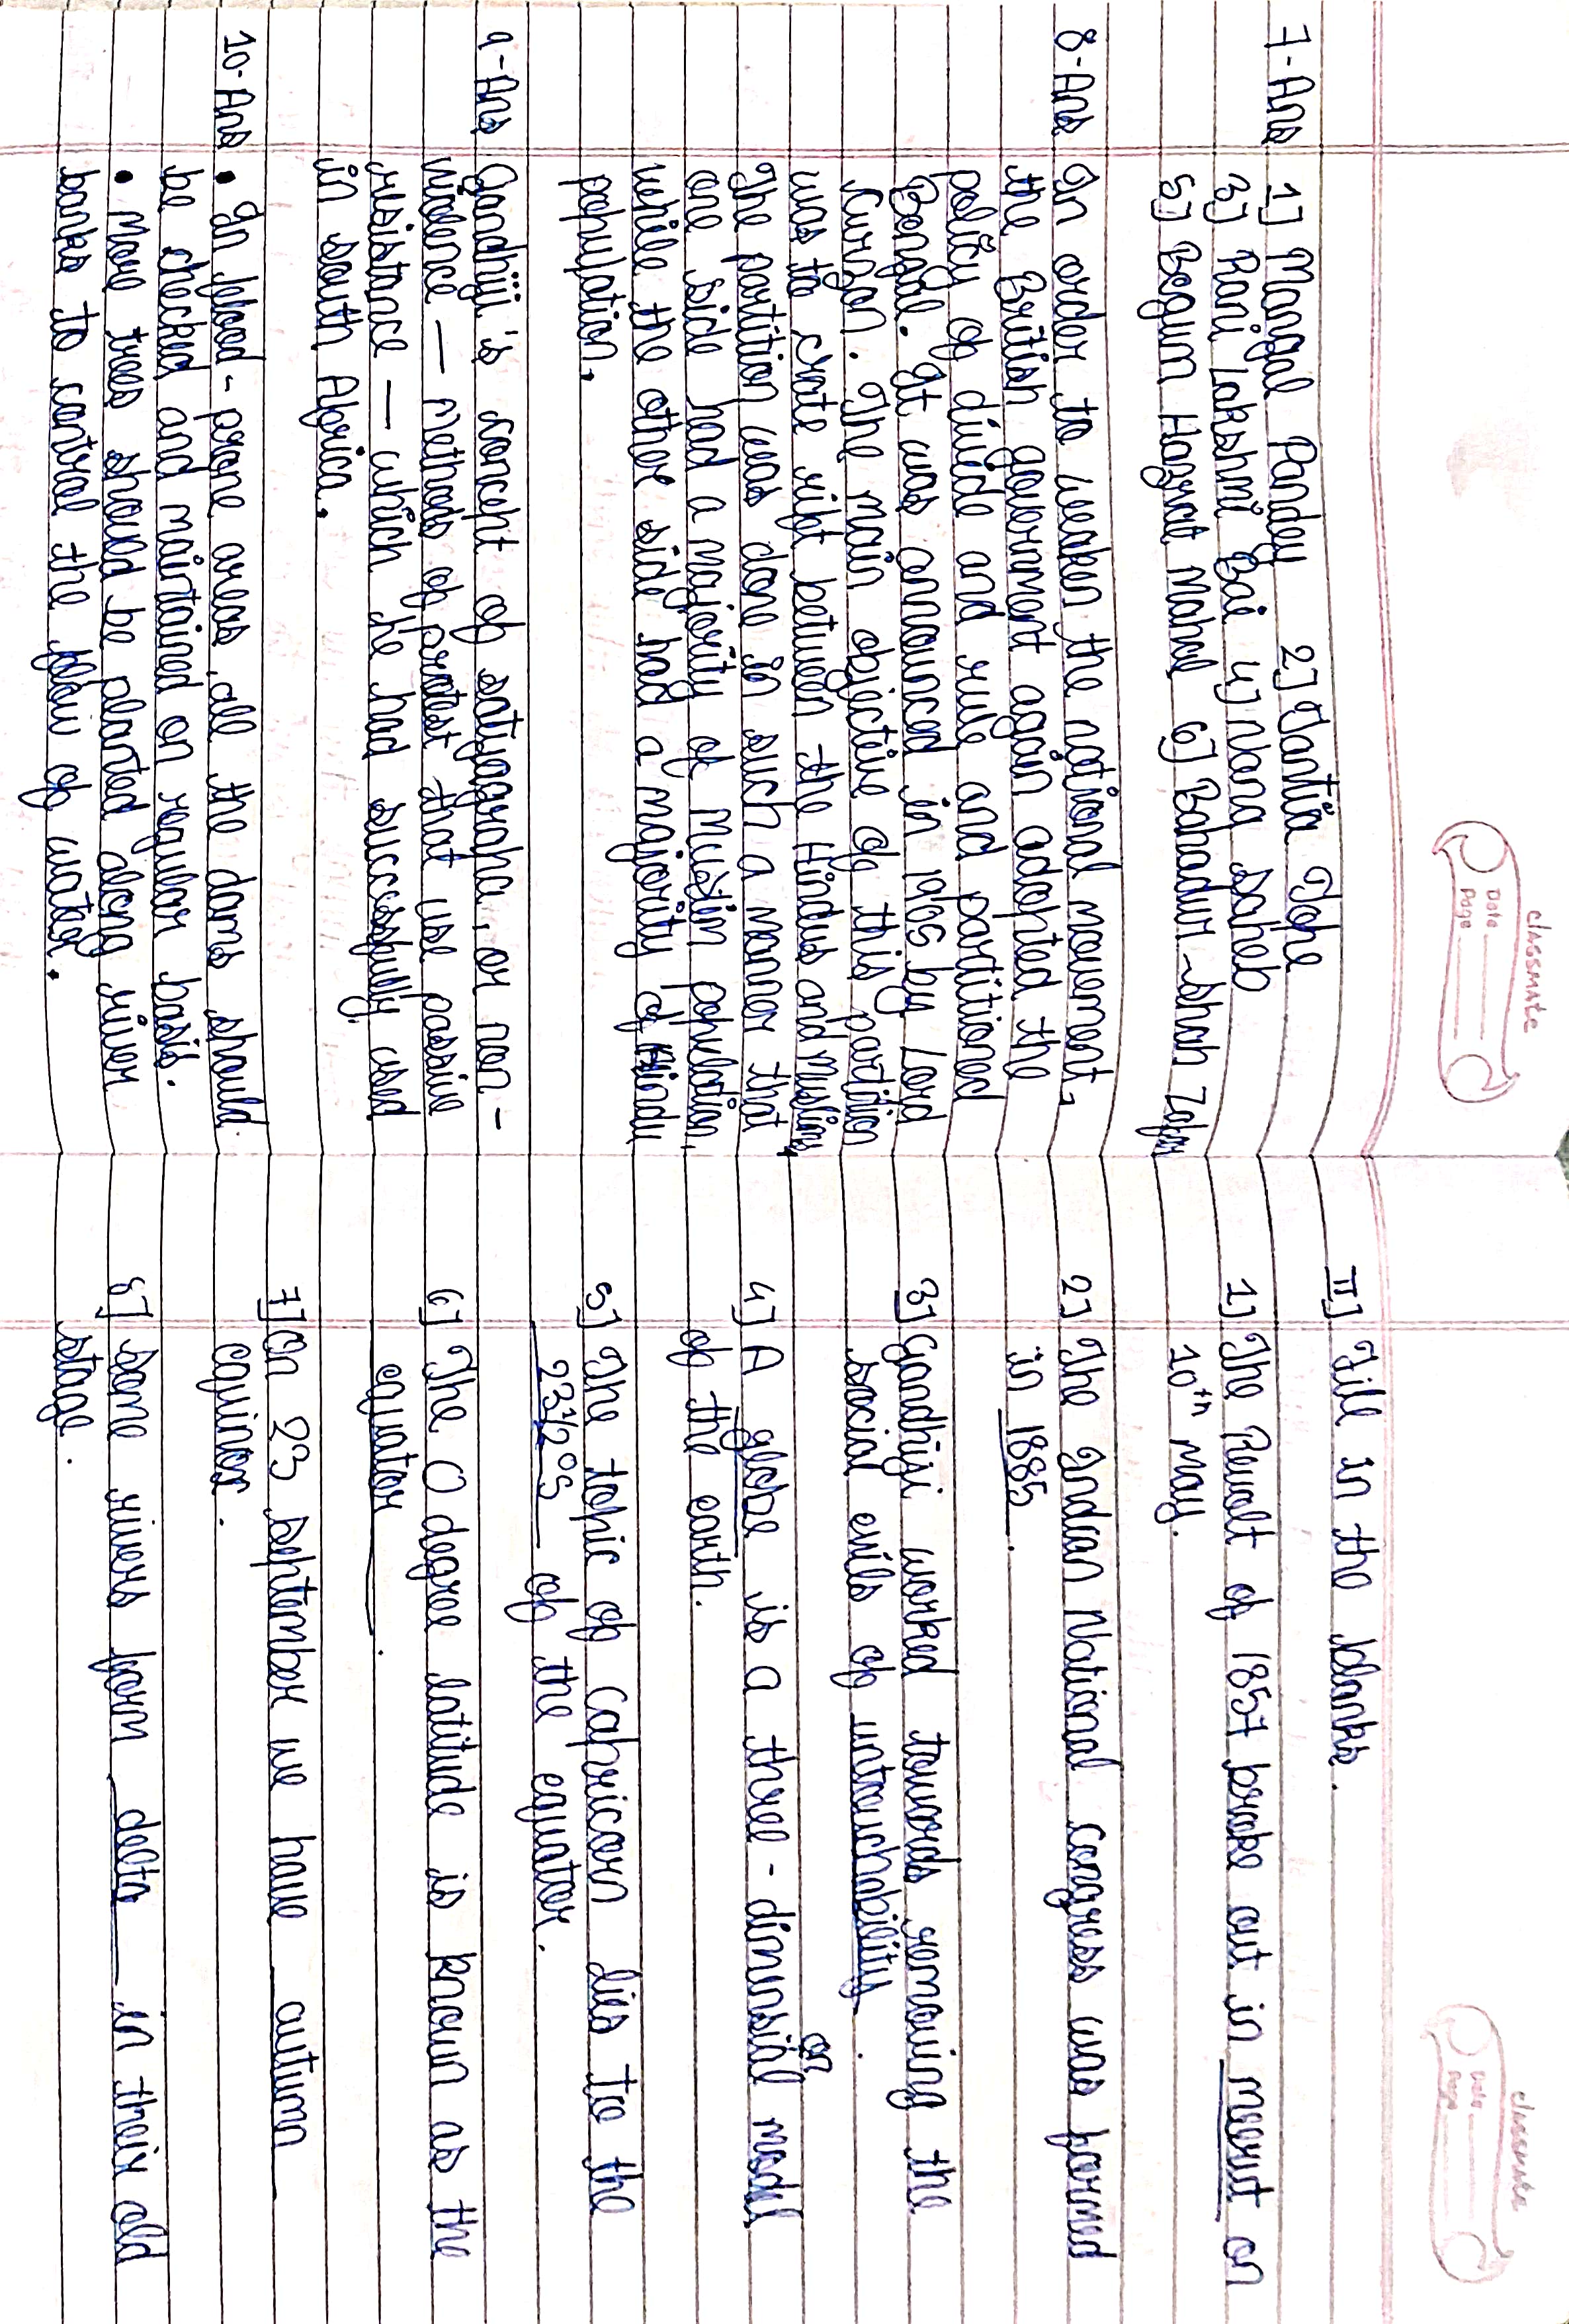 classmate
Date
Page
7-Ans 1] Mangal Pandey 2] Tantia Tope
3] Rani Lakshmi Bai 4] Nana Saheb
5] Begum Hazrat Mahal 6] Bahadur Shah Zafar
8-Ans In order to weaken the national movement,
the British government again adopted the
policy of divide and rule and partitioned
Bengal. It was announced in 1905 by Lord
Curzon. The main objective of this partition
was to create rift between the Hindus and Muslims.
The partition was done in such a manner that
one side had a majority of Muslim population,
while the other side had a majority of Hindu
population.
9-Ans Gandhiji's concept of satyagraha, or non-
violence — methods of protest that use passive
resistance — which he had successfully used
in South Africa.
10-Ans • In flood-prone areas, all the dams should
be checked and maintained on regular basis.
• More trees should be planted along river
banks to control the flow of water.
classmate
Date
Page
II] Fill in the blanks.
1] The Revolt of 1857 broke out in meerut on
10th May.
2] The Indian National congress was formed
in 1885.
3] Gandhiji worked towards removing the
social evils of untouchability.
4] A globe is a three-dimensional model
of the earth.
5] The topic of capricorn lies to the
23 1/2°S of the equator.
6] The 0 degree latitude is known as the
equator.
7] On 23 September we have autumn
equinox.
8] Some rivers form delta in their old
stage.